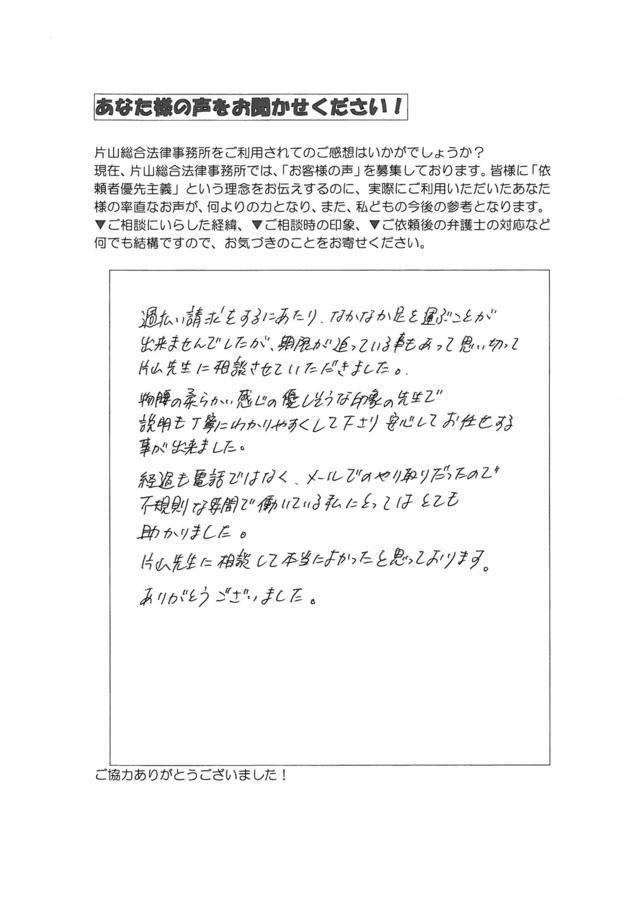 あなた様の声をお聞かせください！
片山総合法律事務所をご利用されてのご感想はいかがでしょうか？
現在、片山総合法律事務所では、「お客様の声」を募集しております。皆様に「依
頼者優先主義」という理念をお伝えするのに、実際にご利用いただいたあなた
様の率直なお声が、何よりの力となり、また、私どもの今後の参考となります。
▼ご相談にいらした経緯、▼ご相談時の印象、▼ご依頼後の弁護士の対応など
何でも結構ですので、お気づきのことをお寄せください。
過払い請求をするにあたり、なかなか足を運ぶことが
出来ませんでしたが、期限が迫っている事もあって思い切って
片山先生に相談させていただきました。
物腰の柔らかい感じの優しそうな印象の先生で
説明も丁寧にわかりやすくして下さり安心してお任せする
事が出来ました。
経過も電話ではなく、メールでのやり取りだったので
不規則な時間で働いている私にとってはとても
助かりました。
片山先生に相談して本当によかったと思っております。
ありがとうございました。
ご協力ありがとうございました！